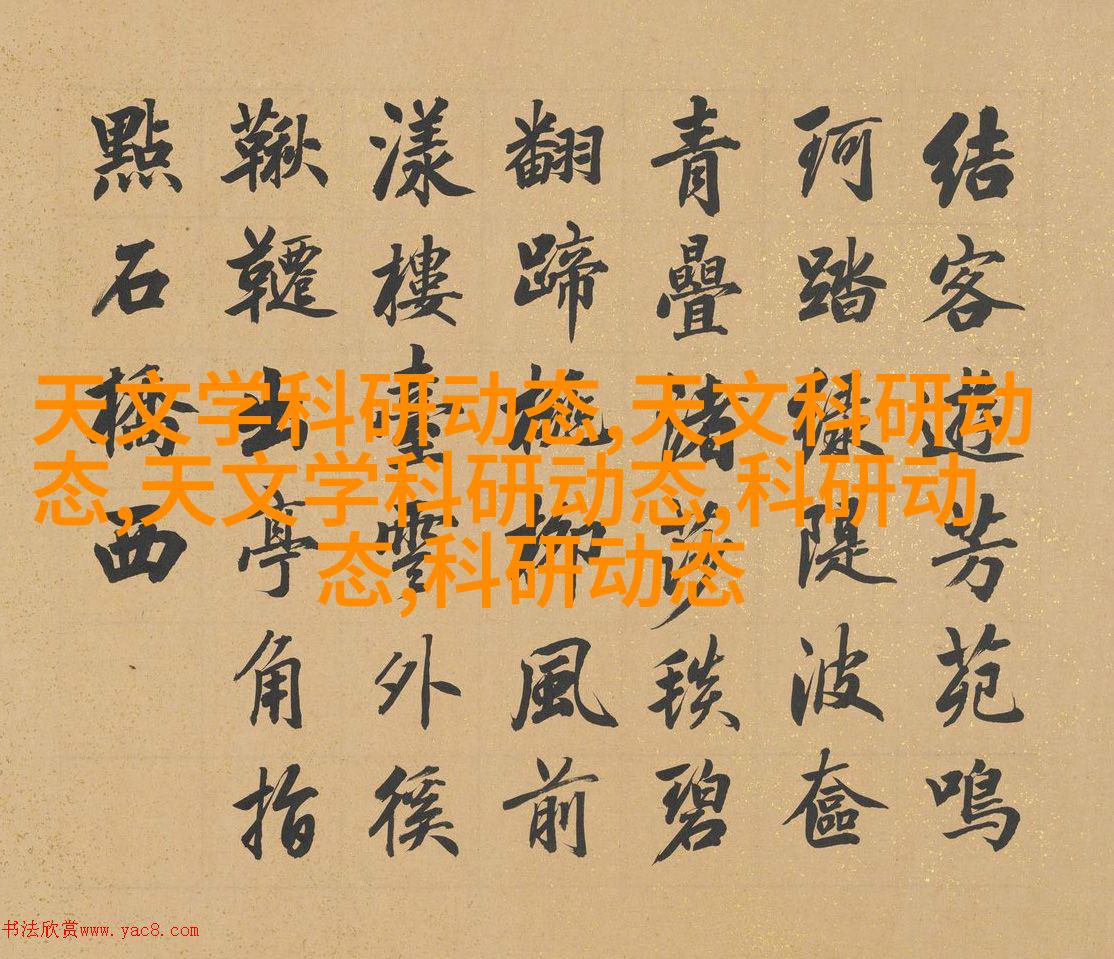 結客遊芳苑鳴
珂踏綠隄波奩
青疊渚莎毯碧
翻蹄柳風前
漾樓臺雲外徯
鞦韆出亭角指
點石橋西
天文学科研动态,天文科研动
态,天文学科研动态,科研动
态,科研动态
书法欣赏www.yac8.com